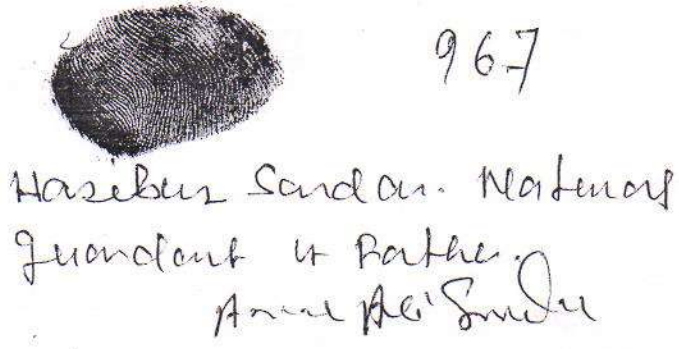 967
Hasibur Sardar. Natural
Guardant is Father.
Ali Sardar